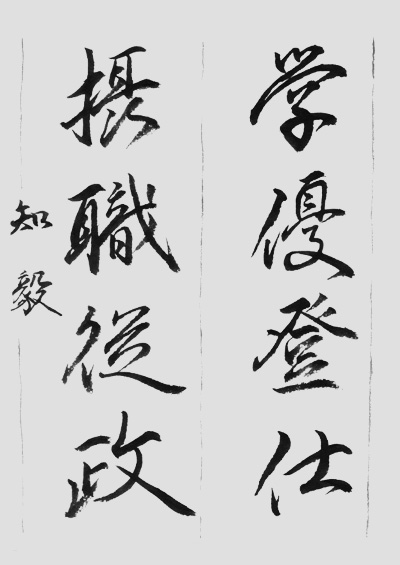 学優登仕
攝職從政
知毅